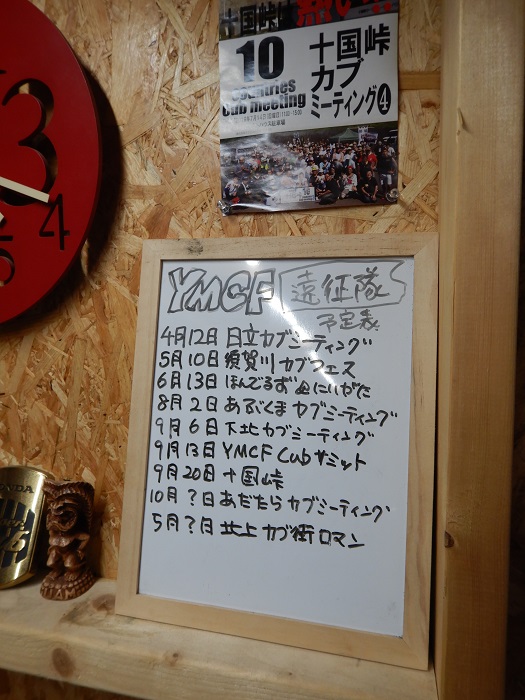 十国峠は熱い!!
10
countries
Cub meeting
十国峠
カブ
ミーティング4
3
4
5
YMCF 遠征隊
予定表
4月12日 日立カブミーティング
5月10日 須賀川カブフェス
6月13日 ほんでるず
にいがた
8月2日 あぶくまカブミーティング
9月6日 下北カブミーティング
9月13日 YMCF Cubサミット
9月20日 十国峠
10月?日 あだたらカブミーティング
5月?日 北上カブ街ロマン